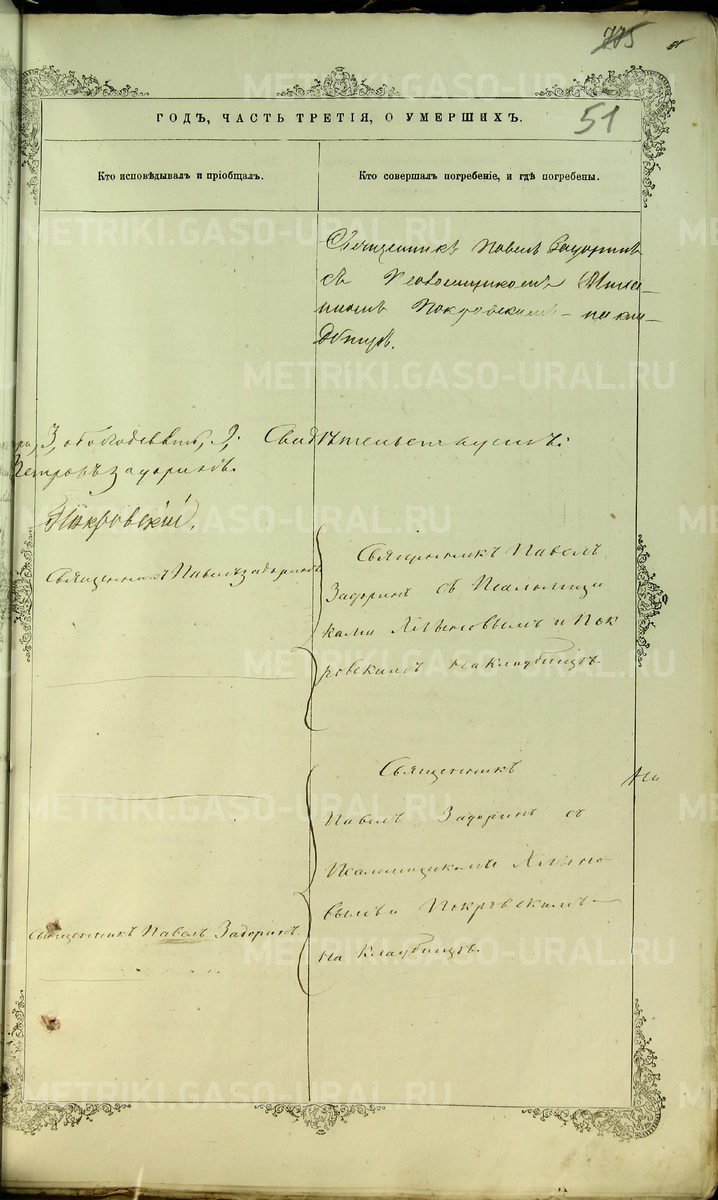 775
51
51
ГОДЪ, ЧАСТЬ ТРЕТІЯ, О УМЕРШИХЪ.
Кто исповѣдывалъ и пріобщалъ.
Кто совершалъ погребеніе, и гдѣ погребены.
Священникъ Павелъ Задоринъ
съ Псаломщикомъ
Покровскимъ – на кла-
дбищѣ.
3, обоего 9, Свидѣтельствуемъ:
Петровъ Задоринъ.
Покровскій.
Священникъ Павелъ Задоринъ
Священникъ Павелъ
Задоринъ съ Псаломщи
ками и Пок
ровскимъ на Кладбищѣ.
Священникъ
Павелъ Задоринъ съ
Псаломщикомъ
Покровскимъ
на Кладбищѣ.
Священникъ Павелъ Задоринъ.
На
METRIKI.GASO-URAL.RU